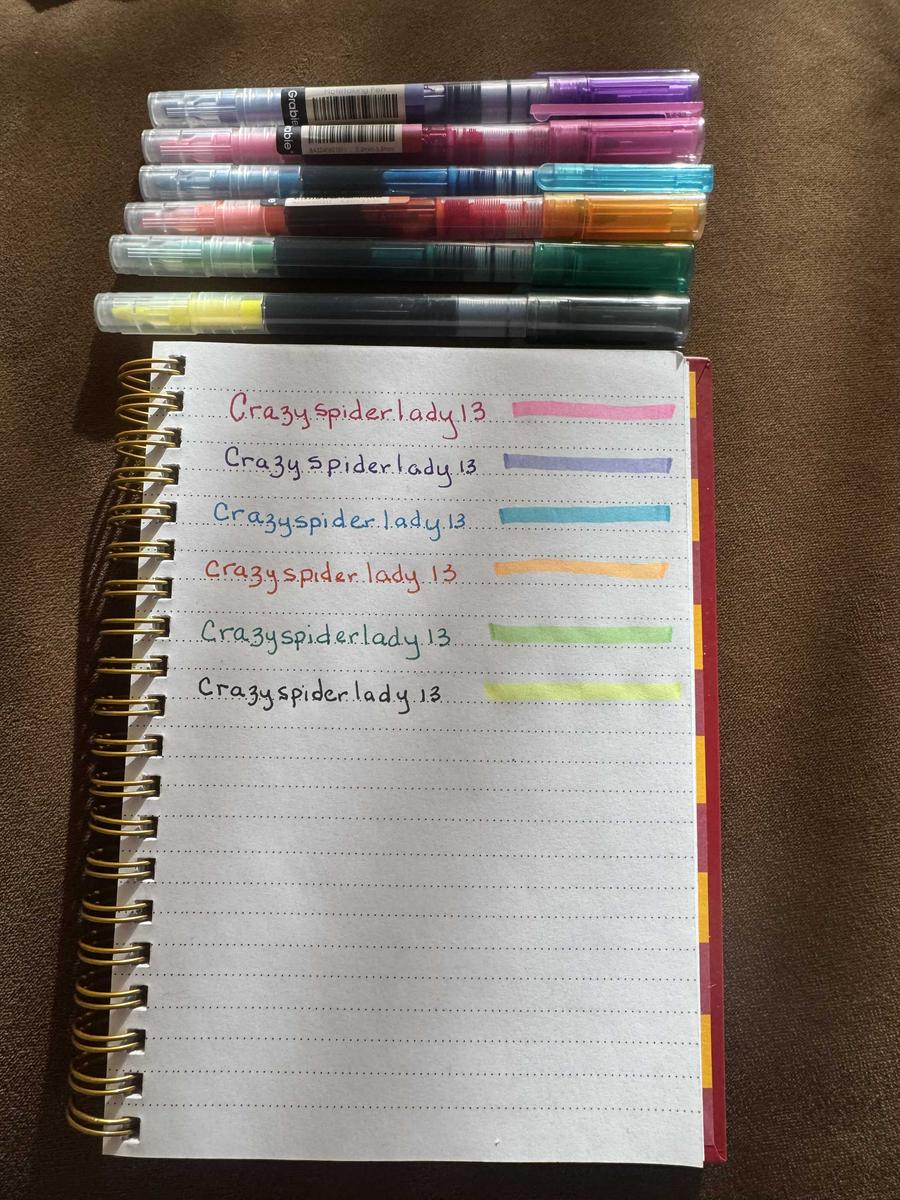 Notetaking Pen
Grabie
Crazyspiderlady13
Crazyspiderlady13
Crazyspiderlady13
Crazyspiderlady13
Crazyspiderlady13
Crazyspiderlady13